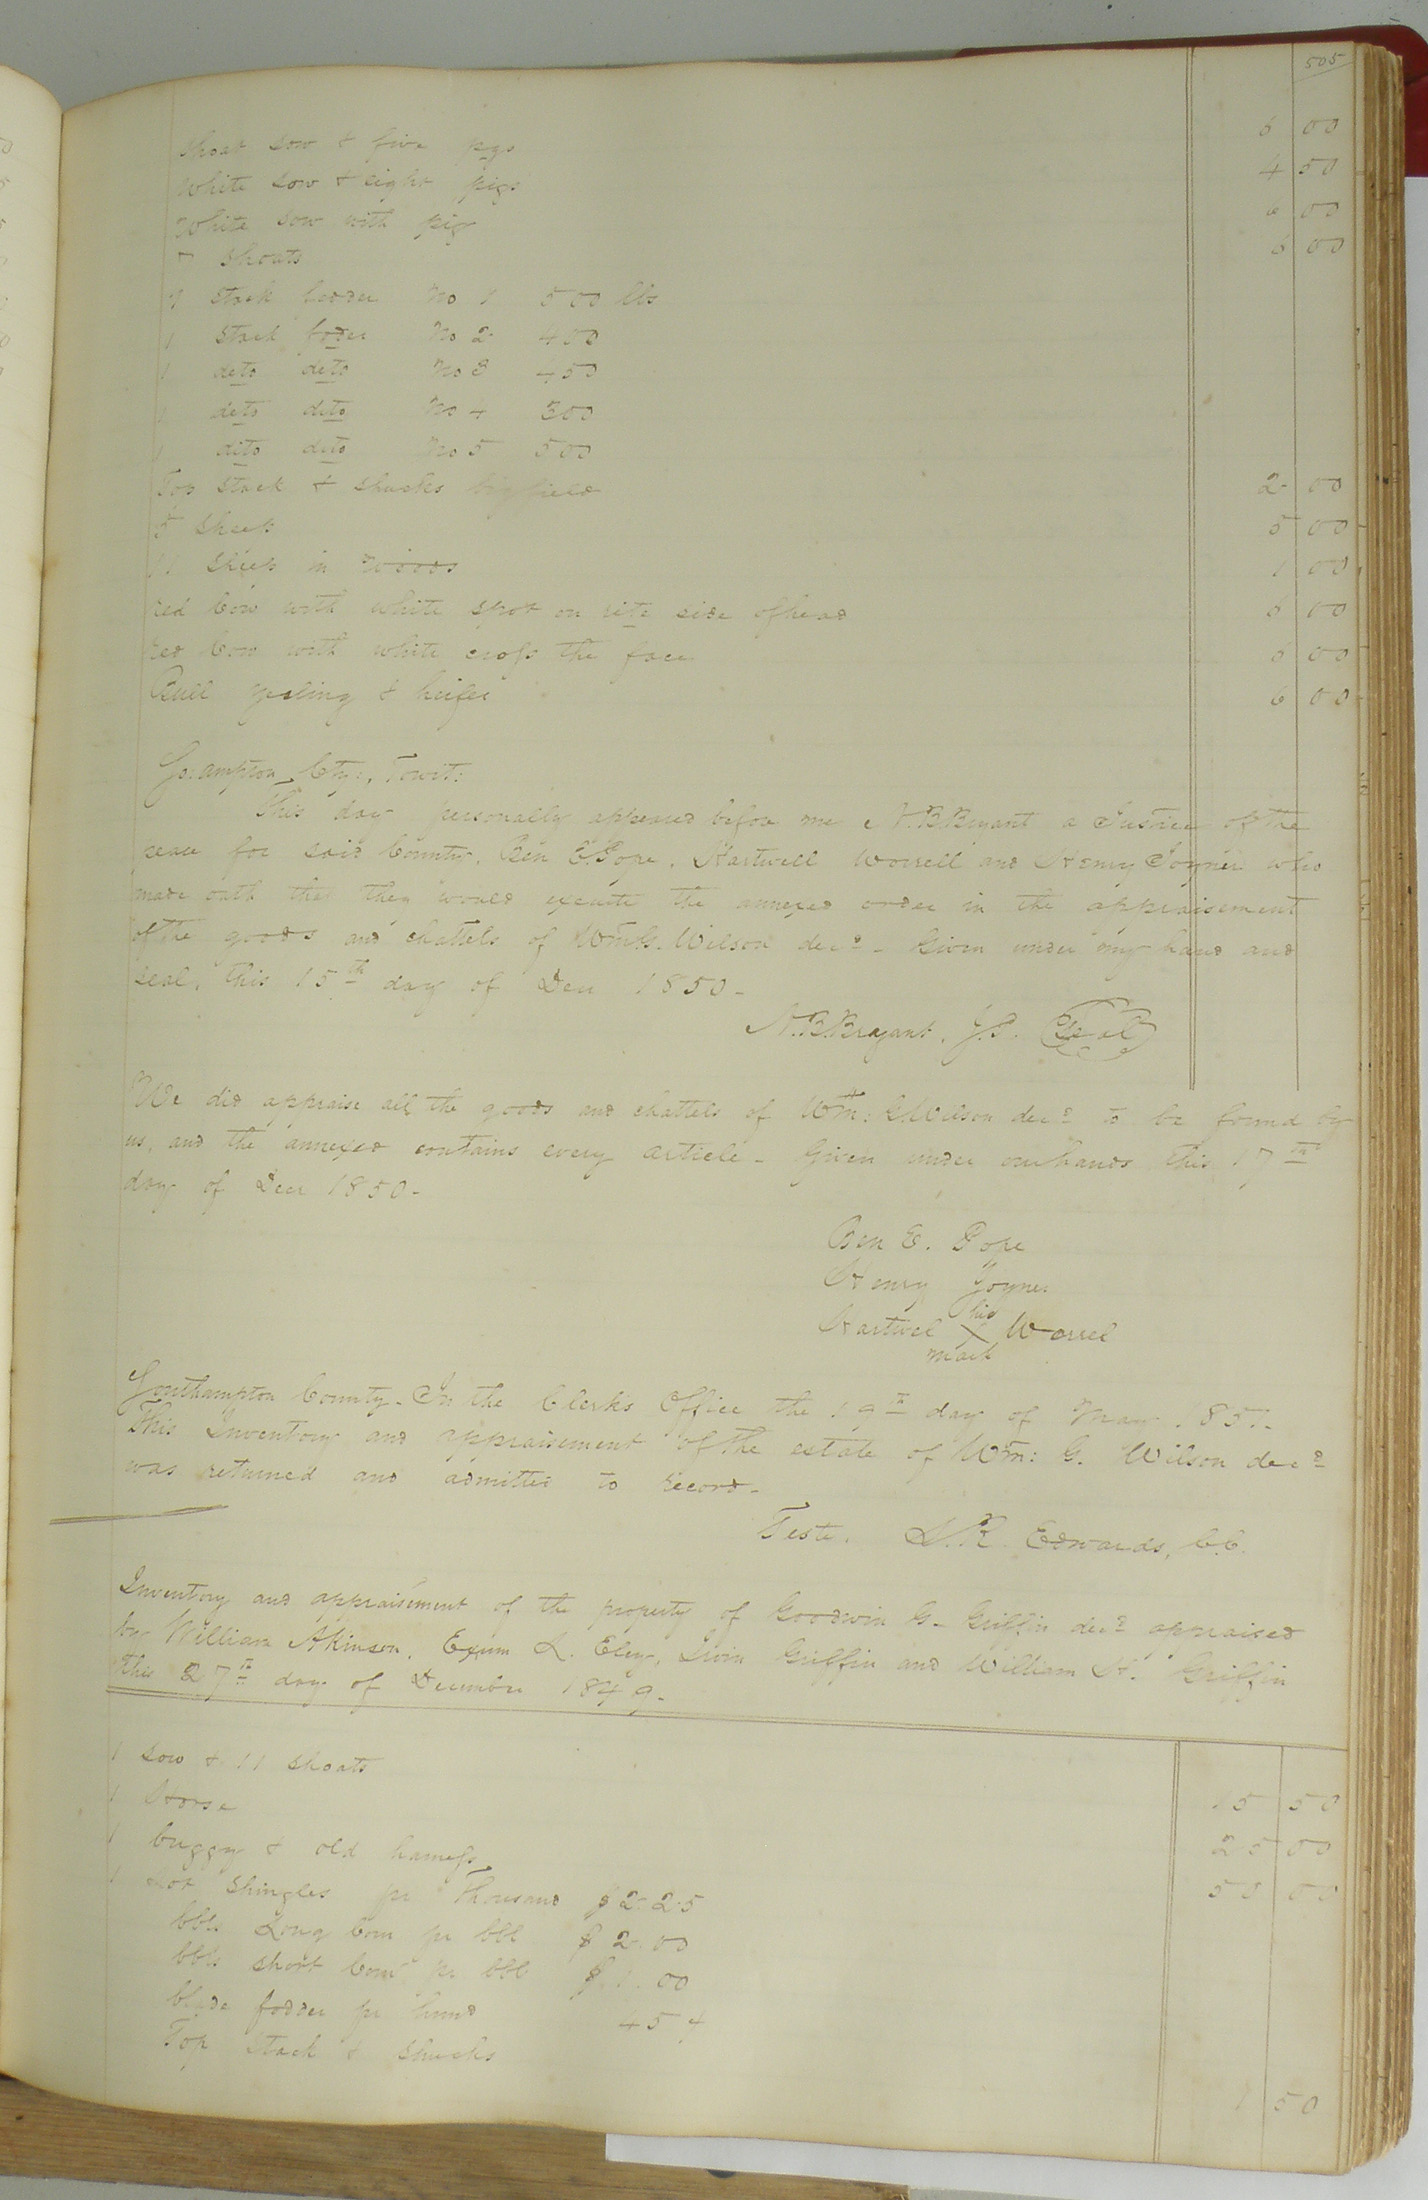 505
Shoat sow & five pigs 6 00
White sow & eight pigs 4 50
White sow with pig 6 00
7 Shoats 6 00
1 stack fodder No 1 500 lbs
1 stack foder No 2 400
1 deto deto No 3 450
1 deto deto No 4 500
1 dito deto No 5 500
Top stack & shucks big field 2 00
5 sheep 5 00
11 sheep in woods 1 00
red Cow with white spot on rite side of head 6 00
red Cow with white cross the face 00
Bull yerling & heifer 6 00
So:ampton Cty:, Towit:
This day personally appeared before me N.B.Bryant a Justice of the
peace for said County, Ben E. Pope, Hartwell Worrell and Henry Joyner who
made oath that they would execute the annexed order in the appraisement
of the goods and chattels of Wm: G. Wilson decd - Given under my hand and
seal, this 15th day of Decr 1850 -
N.B.Bryant, J.P. Seal
We did appraise all the goods and chattels of Wm: G. Wilson decd to be found by
us, and the annexed contains every article - Given under our hands this 17th
day of Decr 1850 -
Ben E. Pope
Henry Joyner
his
Hartwel X Worrel
mark
Southampton County - In the Clerk's Office the 19th day of May 1851 -
This Inventory and appraisement of the estate of Wm: G. Wilson decd
was returned and admitted to record -
Teste. L.R. Edwards, C.C.
Inventory and appraisement of the property of Goodwin G. Griffin decd appraised
by William Akinson, Exum L. Eley, Livin Griffin and William H. Griffin
this 27th day of December 1849 -
1 sow & 11 shoats 15 50
1 Horse 25 00
1 buggy & old harness 50 00
1 Lot Shingles pr Thousand $2.25
bbls Long Corn pr bbl $2.00
bbls short Corn pr bbl $1.00
blade fodder pr hund 45
Top stack & shucks 1 50